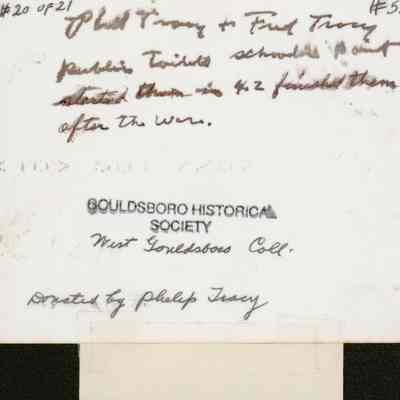 #20 of 21 #5
Phil Tracy & Fred Tracy
public schools
started them in 42 finished them
after the war.
GOULDSBORO HISTORICAL
SOCIETY
West Gouldsboro Coll.
Donated by Philip Tracy